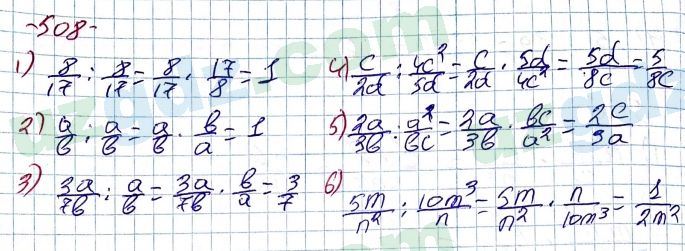 -508-
1) 8/17 : 8/17 = 8/17 · 17/8 = 1
2) a/b : a/b = a/b · b/a = 1
3) 3a/7b : a/b = 3a/7b · b/a = 3/7
4) c/2d : 4c²/5d = c/2d · 5d/4c² = 5d/8c = 5/8c
5) 2a/3b : a²/bc = 2a/3b · bc/a² = 2c/3a
6) 5m/n² : 10m³/n = 5m/n² · n/10m³ = 1/2m²